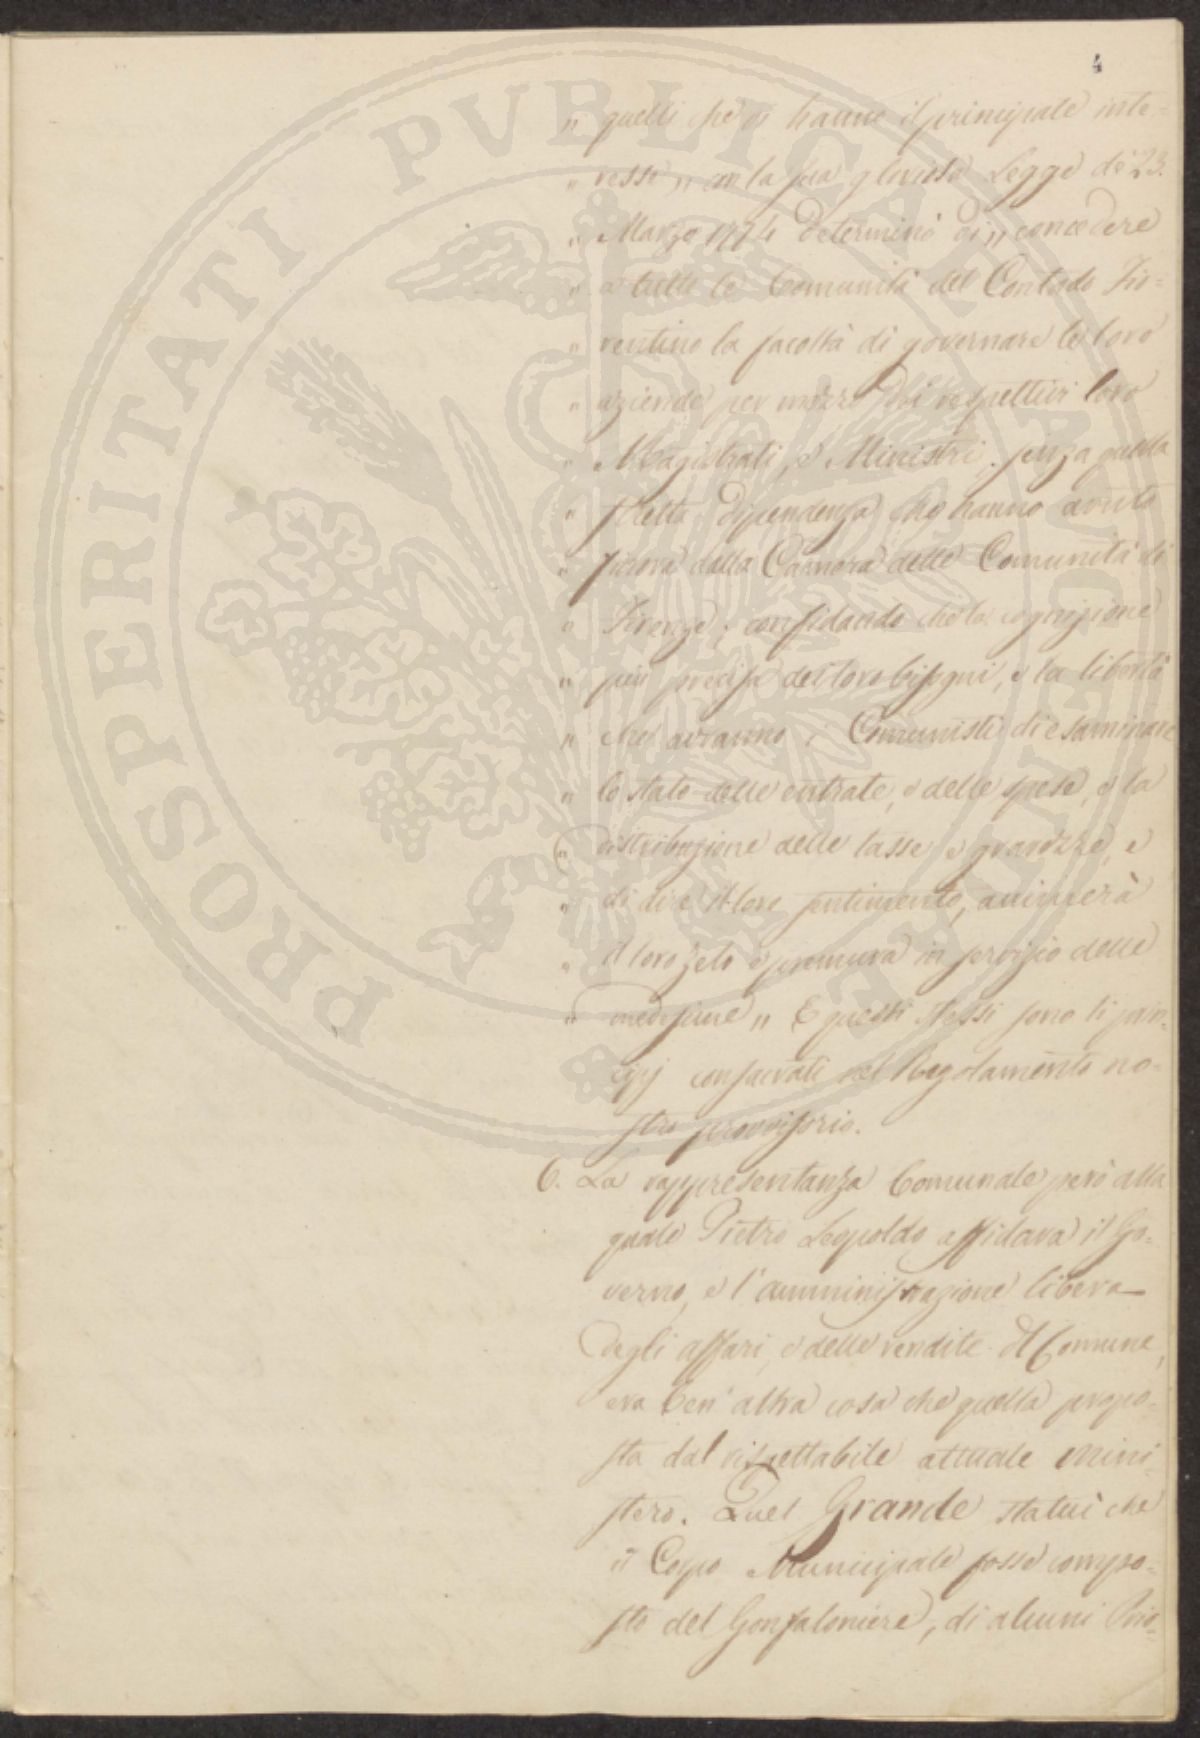 4
„ quelli che vi hanno il principale inte=
„ resse „ con la sua gloriosa Legge de' 23.
„ Marzo 1774 determinò di „ concedere
„ a tutte le Comunità del Contado Fio=
„ rentino la facoltà di governare le loro
„ aziende per mezzo dei respettivi loro
„ Magistrati, e Ministri, senza quella
„ stretta dipendenza che hanno avuto
„ finora dalla Camera delle Comunità di
„ Firenze; confidando che la cognizione
„ più precisa dei loro bisogni, e la libertà
„ che avranno i Comunisti di esaminare
„ lo stato delle entrate, e delle spese, e la
„ distribuzione delle tasse e gravezze, e
„ di dire il loro sentimento, animerà
„ il loro zelo e premura in servizio delle
„ medesime „ E questi stessi sono li prin=
cipj consacrati nel Regolamento no=
stro provvisorio.
6. La rappresentanza Comunale però alla
quale Pietro Leopoldo affidava il Go=
verno, e l'amministrazione libera
degli affari, e delle rendite del Comune,
era ben' altra cosa che quella propo=
sta dal rispettabile attuale Mini=
stero. Quel Grande statuì che
il Corpo Municipale fosse compo=
sto del Gonfaloniere, di alcuni Prio=
PROSPERITATI PVBLICAE AVGENDAE